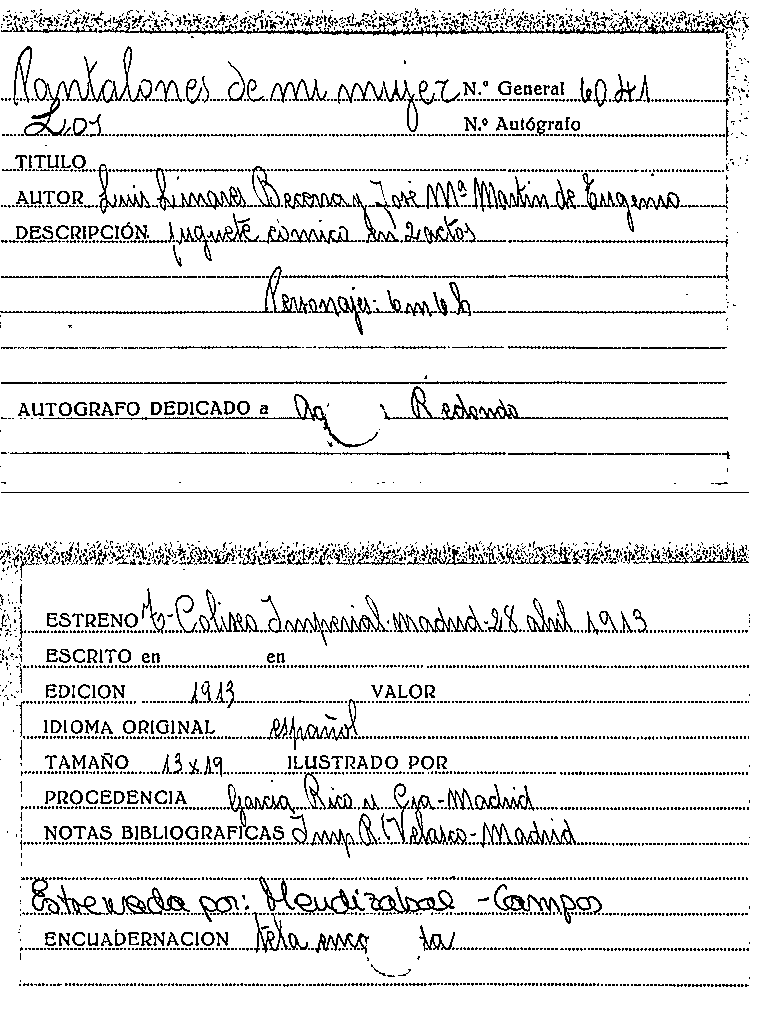 Pantalones de mi mujer N.º General 6041
Los N.º Autógrafo
TITULO
AUTOR Luis Linares Becerra y José Mª Martin de Eugenio
DESCRIPCIÓN juguete cómico en 2 actos
Personajes: 6 m 6 h
AUTOGRAFO DEDICADO a Redondo
ESTRENO T- Coliseo Imperial-Madrid-28 abril 1913
ESCRITO en en
EDICION 1913 VALOR
IDIOMA ORIGINAL español
TAMAÑO 13x19 ILUSTRADO POR
PROCEDENCIA Garcia Rico y Cia-Madrid
NOTAS BIBLIOGRAFICAS Imp R. Velasco-Madrid
Estrenada por: Mendizabal - Campos
ENCUADERNACION tela